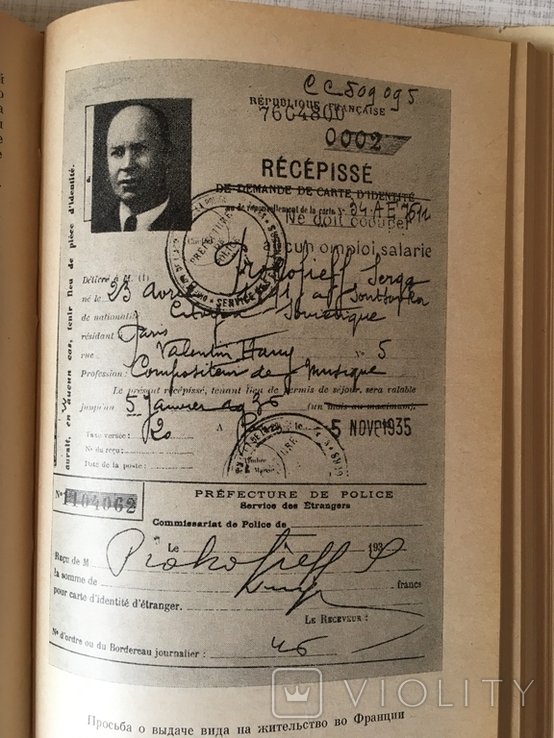 CC509095
RÉPUBLIQUE FRANÇAISE
76C4800
0002
RÉCÉPISSÉ
DE DEMANDE DE CARTE D'IDENTITÉ
ou de renouvellement de la carte N°
Ne doit occuper
aucun emploi salarié
Délivré à M. (1) Prokofieff Serge
né le 23
de nationalité Citoyen Soviétique
résidant à Paris
rue Valentin Hauy N° 5
Profession: Compositeur de Musique
Le présent récépissé, tenant lieu de permis de séjour, sera valable
jusqu'au 5 Janvier 1936 (un mois au maximum).
Taxe versée: 20 A le 5 NOV 1935
N° du reçu:
Date de la poste:
en aucun cas, tenir lieu de pièce d'identité.
PRÉFECTURE DE POLICE
SERVICE DES
N° 104062
PRÉFECTURE DE POLICE
Service des Étrangers
Commissariat de Police de
Le 193
Reçu de M Prokofieff S
la somme de francs
pour carte d'identité d'étranger.
LE RECEVEUR:
N° d'ordre ou du Bordereau journalier: 46
Просьба о выдаче вида на жительство во Франции
VIOLITY